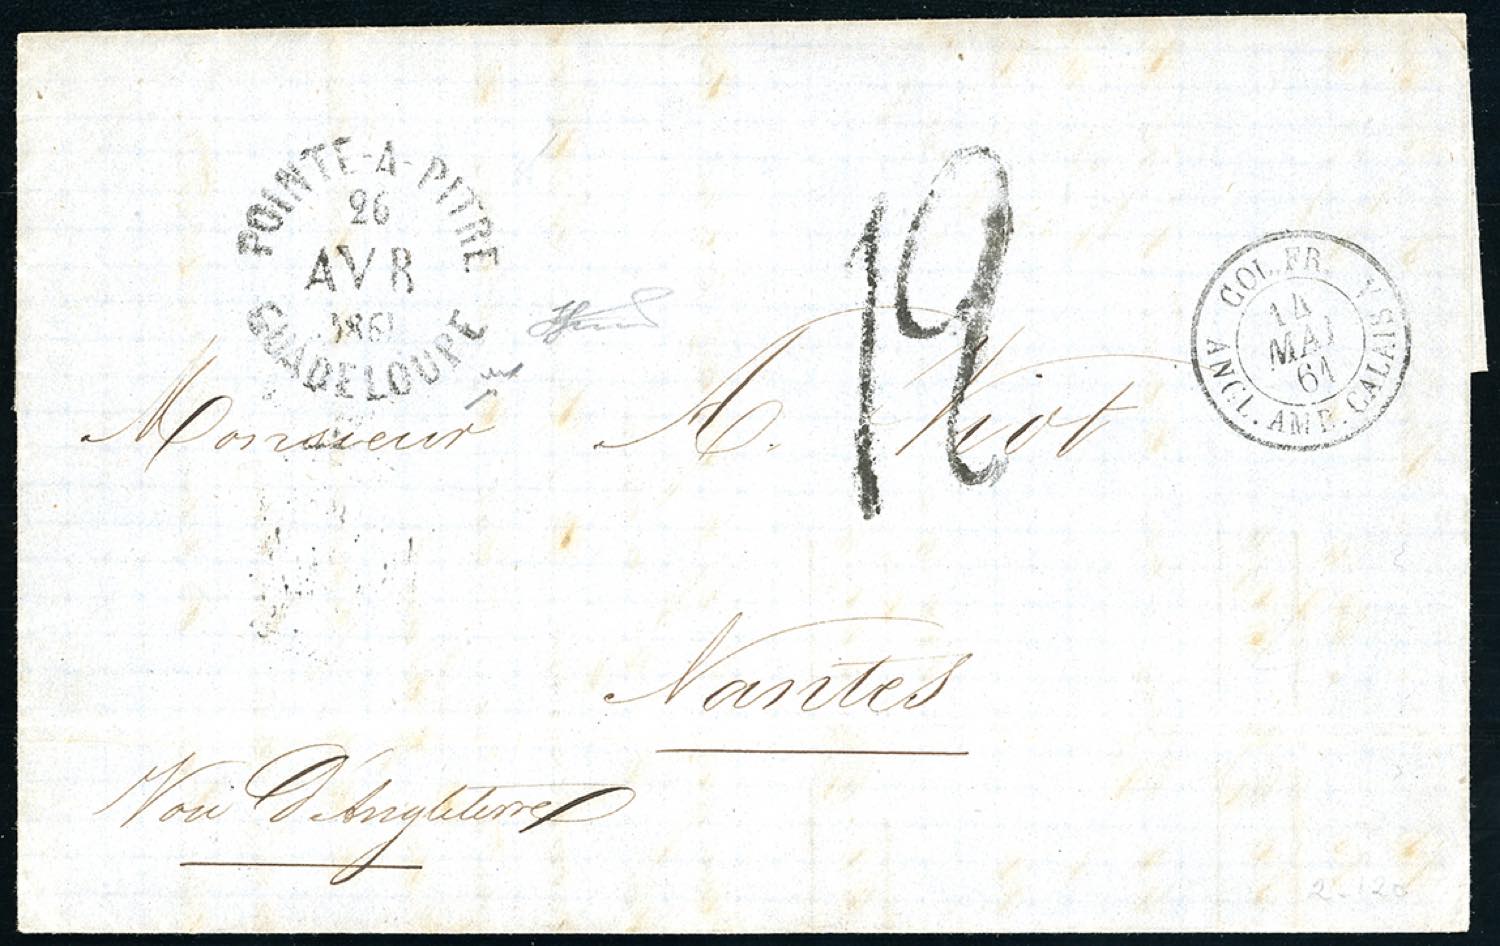 POINTE-A-PITRE
26
AVR
1861
GUADELOUPE
12
COL. FR. V. CALAIS
14
MAI
61
ANGL. AMB. CALAIS
Monsieur A. Viot
Nantes
Voie d'Angleterre
2-120